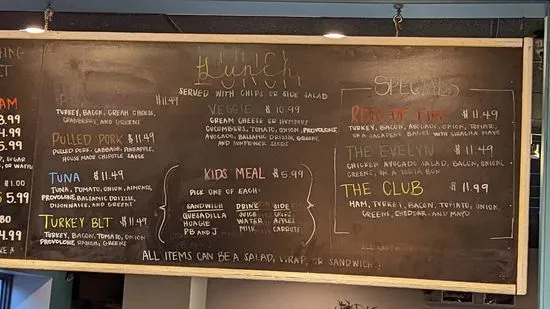 AM
3.99
4.99
4.99
$1.00
5.99
4.99
Lunch
SERVED WITH CHIPS OR SIDE SALAD
$11.49
TURKEY, BACON, CREAM CHEESE,
CRANBERRY AND GREENS
PULLED PORK $11.49
PULLED PORK, CABBAGE, PINEAPPLE,
HOUSE MADE CHIPOTLE SAUCE
TUNA $11.49
TUNA, TOMATO, ONION, ALMONDS,
PROVOLONE, BALSAMIC DRIZZLE,
DIJONNAISE, AND GREENS
TURKEY BLT $11.49
TURKEY, BACON, TOMATO, ONION
PROVOLONE, RANCH, GREENS
VEGGIE $10.99
CREAM CHEESE OR HUMMUS
CUCUMBERS, TOMATO, ONION, PROVOLONE
AVOCADO, BALSAMIC DRIZZLE, GREENS,
AND SUNFLOWER SEEDS
KIDS MEAL $5.99
PICK ONE OF EACH
SANDWICH DRINK SIDE
QUESADILLA JUICE CHIPS
HOAGIE WATER APPLES
PB AND J MILK CARROTS
SPECIALS
$11.49
TURKEY, BACON, AVOCADO, ONION, TOMATO,
ON A JALAPENO BAGEL WITH SRIRACHA MAYO
THE EVELYN $11.49
CHICKEN AVOCADO SALAD, BACON, ONION,
GREENS, ON A TORTA BUN
THE CLUB $11.99
HAM, TURKEY, BACON, TOMATO, ONION,
GREENS, CHEDDAR AND MAYO
ALL ITEMS CAN BE A SALAD, WRAP, OR SANDWICH!